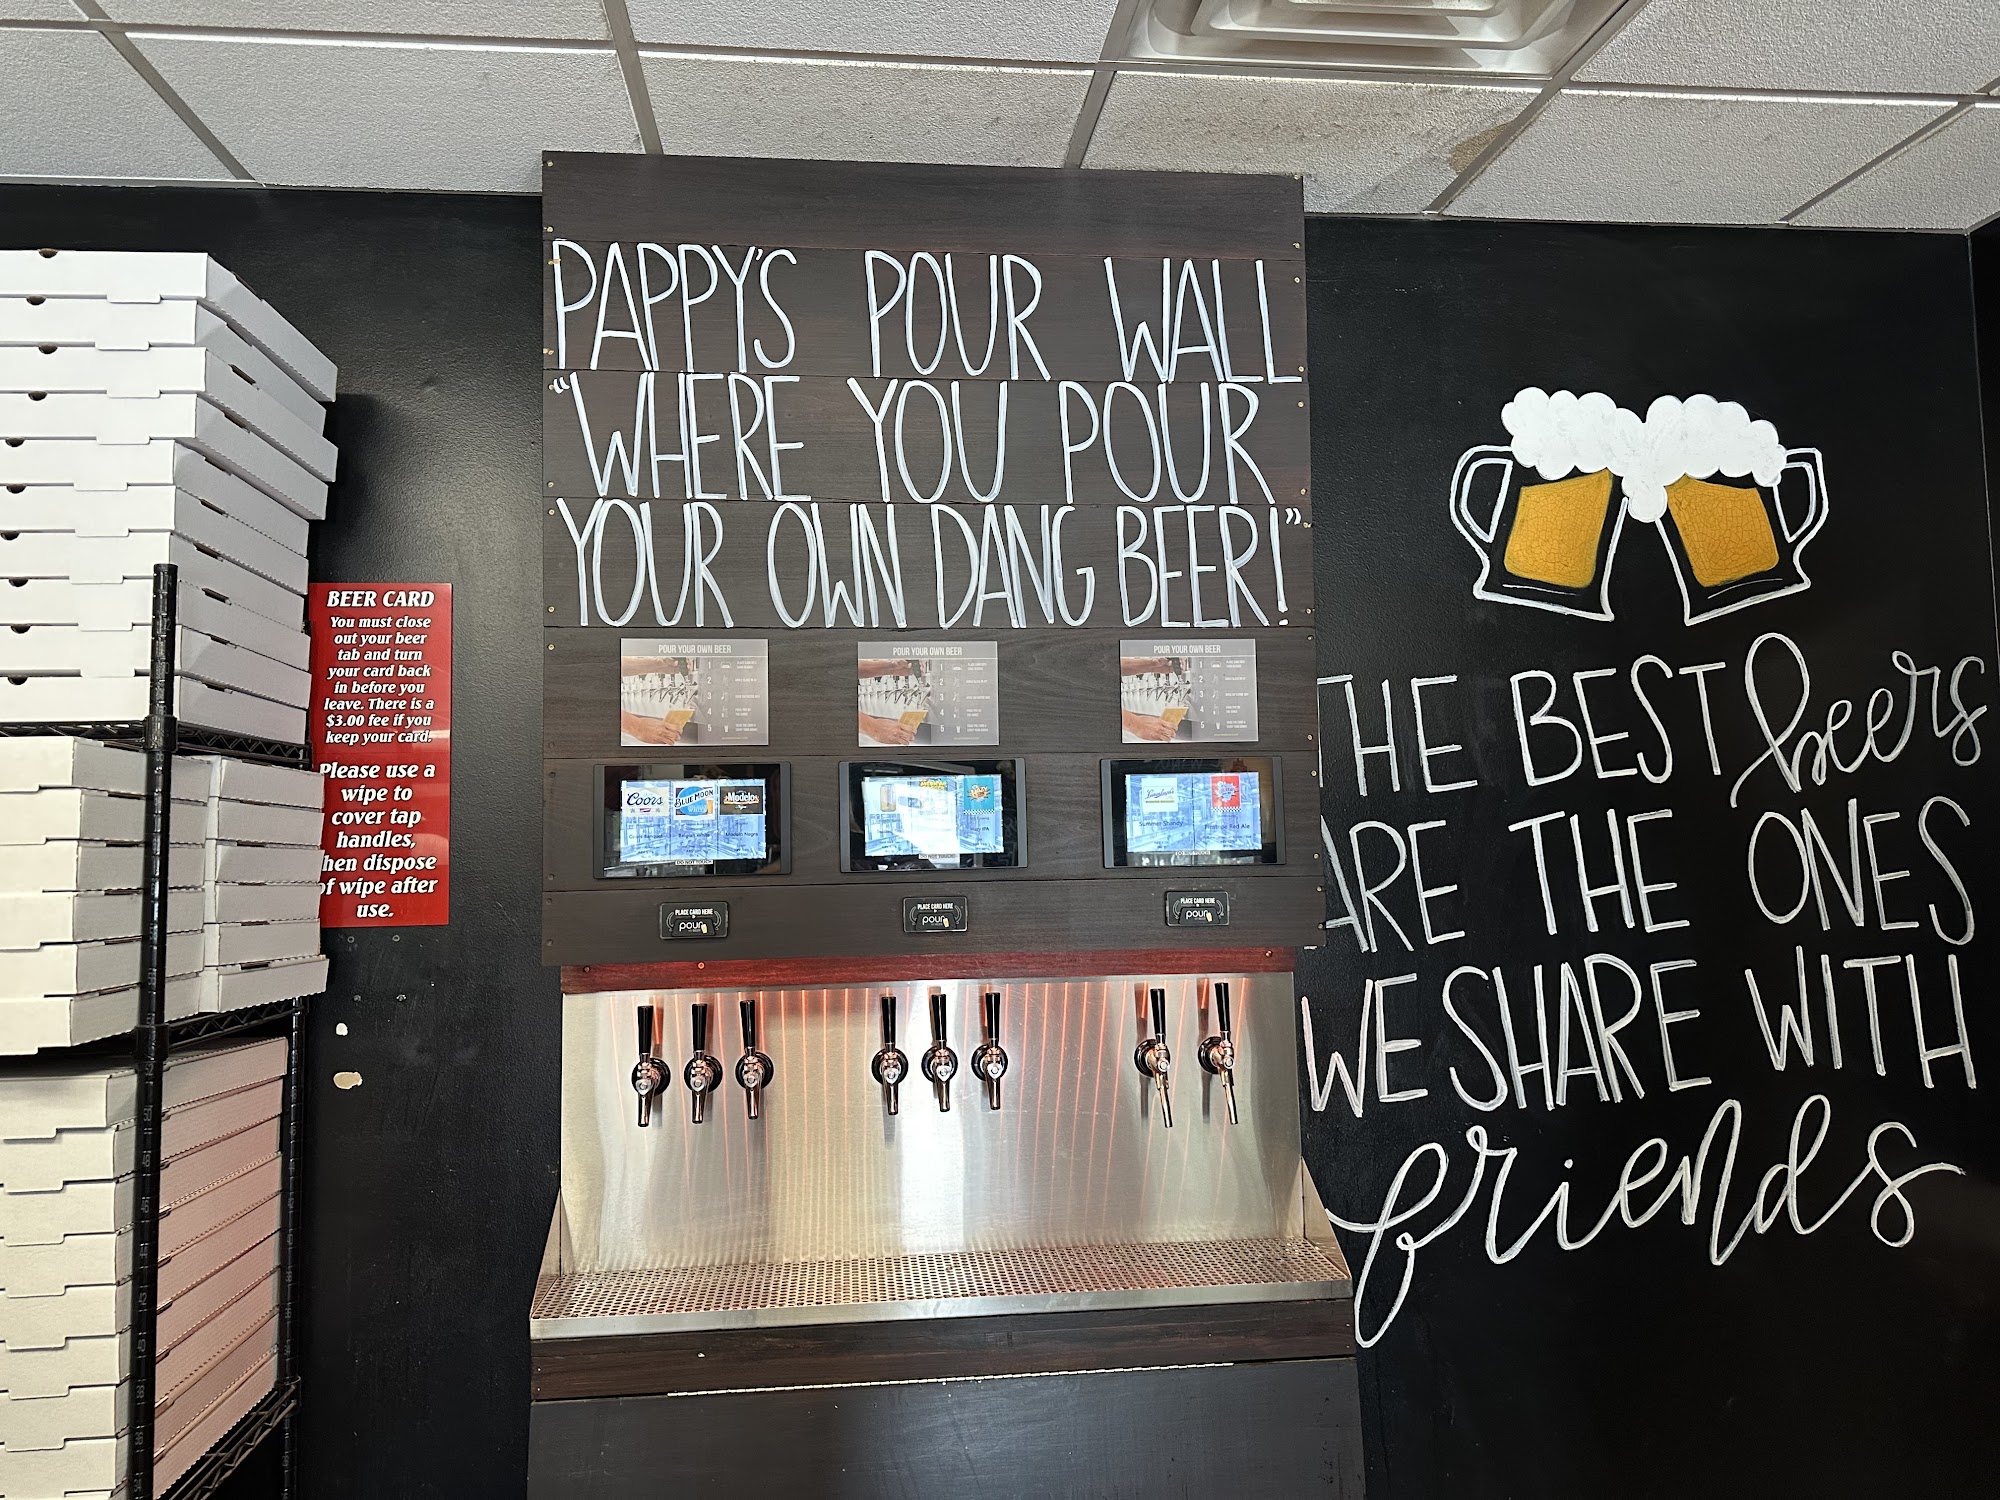 PAPPY'S POUR WALL
"WHERE YOU POUR
YOUR OWN DANG BEER!"
BEER CARD
You must close
out your beer
tab and turn
your card back
in before you
leave. There is a
$3.00 fee if you
keep your card.
Please use a
wipe to
cover tap
handles,
hen dispose
of wipe after
use.
POUR YOUR OWN BEER
POUR YOUR OWN BEER
POUR YOUR OWN BEER
1
2
3
4
5
1
2
3
4
5
1
2
3
4
5
Coors
BLUE MOON
Modelo
Belgian White
Modelo Negra
DO NOT TOUCH
Hazy IPA
DO NOT TOUCH
Summer Shandy
Red Ale
DO NOT TOUCH
PLACE CARD HERE
pour
PLACE CARD HERE
pour
PLACE CARD HERE
pour
THE BEST beers
ARE THE ONES
WE SHARE WITH
friends